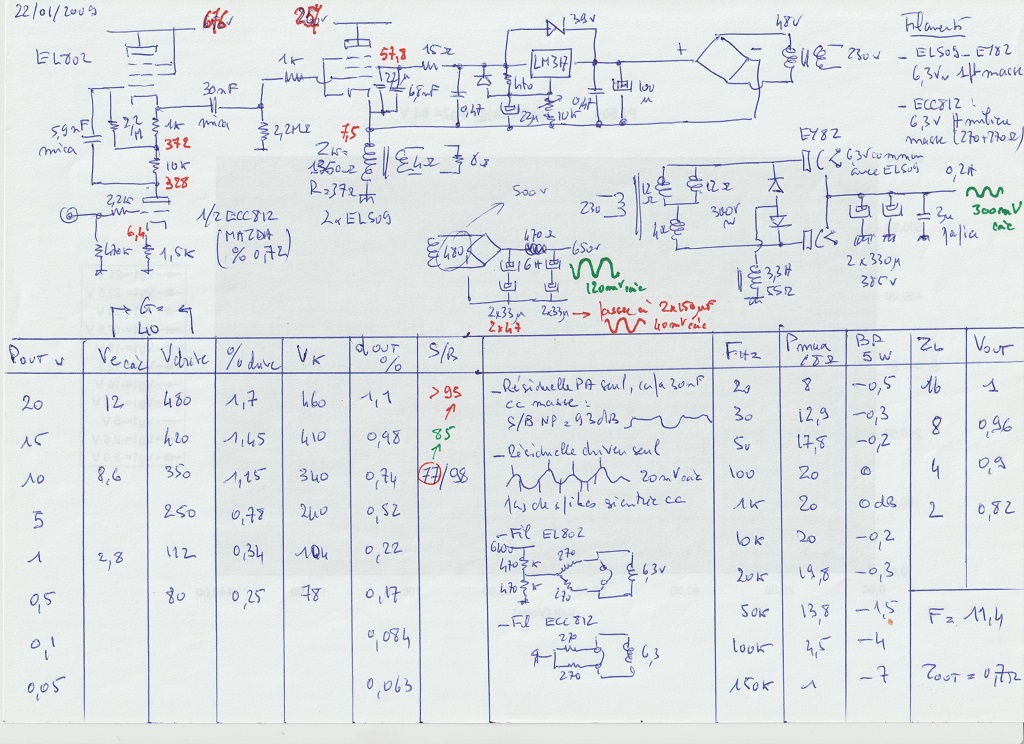 22/01/2009
676v
257v
39V
48V
230v
Filaments
- EL509 - EY82
6,3V~ 1 pt masse
- ECC812 :
6,3V pt milieu
masse (270+270Ω)
EL802
57,8
15Ω
LM317
+
-
1K
30nF
mica
22µ
68nF
0,47
470
22µ
10K
0,47
100
µ
5,9nF
mica
2,2
M
1K
372
10K
328
2,2MΩ
7,5
1350Ω
R=37Ω
2xEL509
4Ω
8Ω
EY82
6,3V commun
avec EL509
0,2A
300mV
càc
500V
230
12Ω
12Ω
4Ω
300V
~
2x330µ
385V
2µ
3,3H
55Ω
2,2K
6,4
470K
1,5K
1/2 ECC812
(MAZDA
% 0,72)
480
470Ω
6H
650V
120mV càc
2x33µ
2x33µ
2x47
→ passe à 2x150µF
40mV càc
G=
40
POUT W
Ve càc
Vdrive
% drive
VK
dOUT
%
S/B
FHz
Pmax
BP
5W
ZL
VOUT
20 12 480 1,7 460 1,1 >95
15 420 1,45 410 0,98 85
10 8,6 350 1,15 340 0,74 77/98
5 250 0,78 240 0,52
1 2,8 112 0,34 104 0,22
0,5 80 0,25 78 0,17
0,1 0,084
0,05 0,063
- Résiduelle PA seul, capa 30nF
cc masse :
S/B NP = 93dB
- Résiduelle driver seul
20mV càc
pas de spikes si entrée cc
- Fil EL802
470K
470K
270
270
6,3V
- Fil ECC812
270
270
6,3
20 8 -0,5
30 12,9 -0,3
50 17,8 -0,2
100 20 0
1K 20 0dB
10K 20 -0,2
20K 19,8 -0,3
50K 13,8 -1,5
100K 4,5 -4
150K 1 -7
16 1
8 0,96
4 0,9
2 0,82
F= 11,4
ZOUT = 0,75Ω